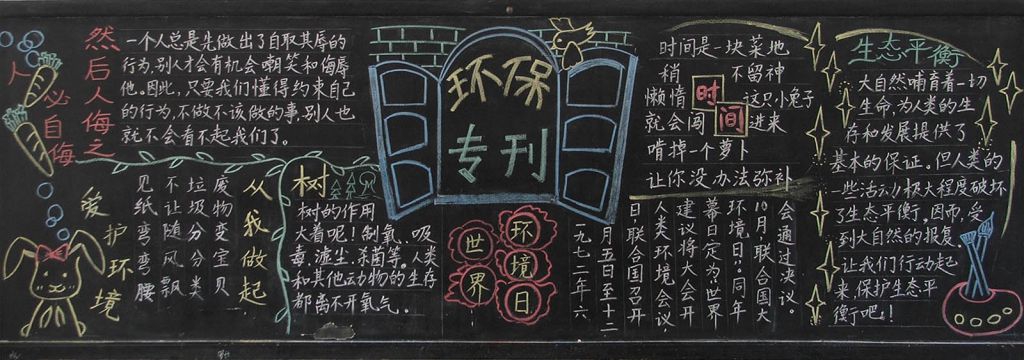 人必自侮
然后人侮之
一个人总是先做出了自取其辱的
行为,别人才会有机会嘲笑和侮辱
他。因此,只要我们懂得约束自己
的行为,不做不该做的事,别人也
就不会看不起我们了。
爱护环境
见纸弯弯腰
不让随风飘
垃圾分分类
废物变宝贝
从我做起
树
树的作用
大着呢!制氧、吸
毒、滤尘、杀菌等。人类
和其他动物的生存
都离不开氧气。
环保
专刊
世界
环境日
一九七二年六
月五日至十二
日,联合国召开
人类环境会议
建议将大会开
幕日定为世界
环境日。同年
10月,联合国大
会通过决议。
时间
时间是一块菜地
稍不留神
懒惰这只小兔子
就会闯进来
啃掉一个萝卜
让你没办法弥补
生态平衡
大自然哺育着一切
生命,为人类的生
存和发展提供了
基本的保证。但人类的
一些活动极大程度破坏
了生态平衡。因而,受
到大自然的报复。
让我们行动起
来,保护生态平
衡吧!